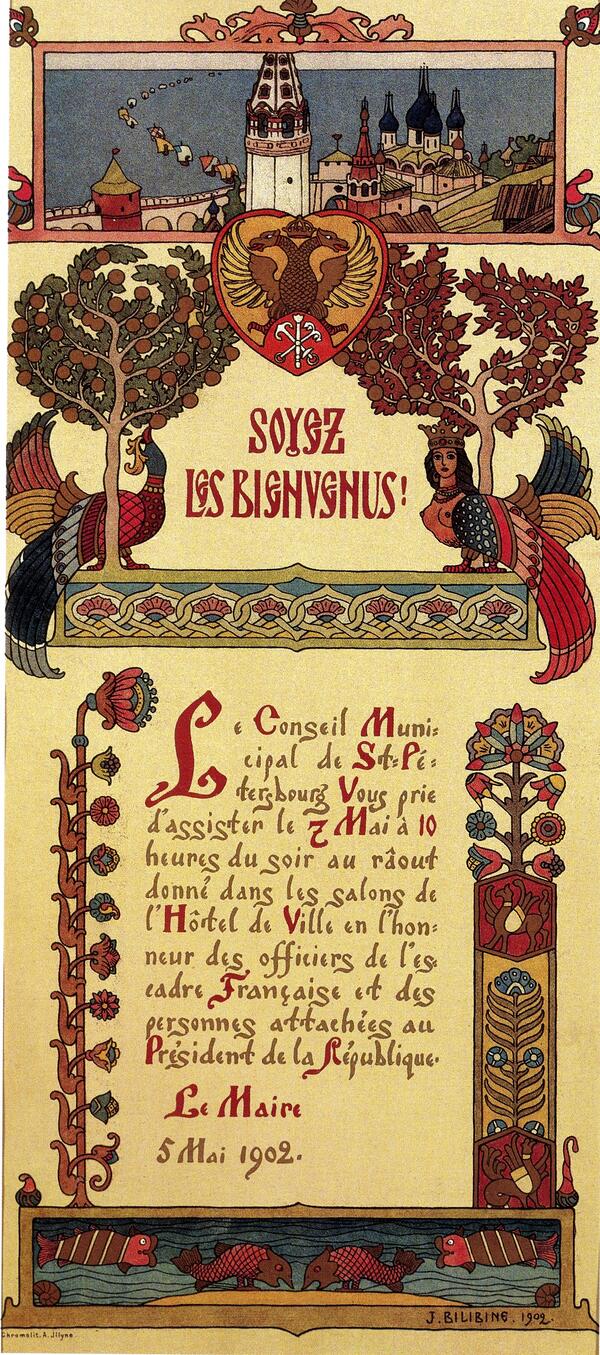 SOYEZ
LES BIENVENUS!
Le Conseil Muni:
cipal de St=Pé:
tersbourg Vous prie
d'assister le 7 Mai à 10
heures du soir au râout
donné dans les salons de
l'Hôtel de Ville en l'hon:
neur des officiers de l'es:
cadre Française et des
personnes attachées au
Président de la République.
Le Maire
5 Mai 1902.
J. BILIBINE. 1902.
Chromolit. A. Jliyne